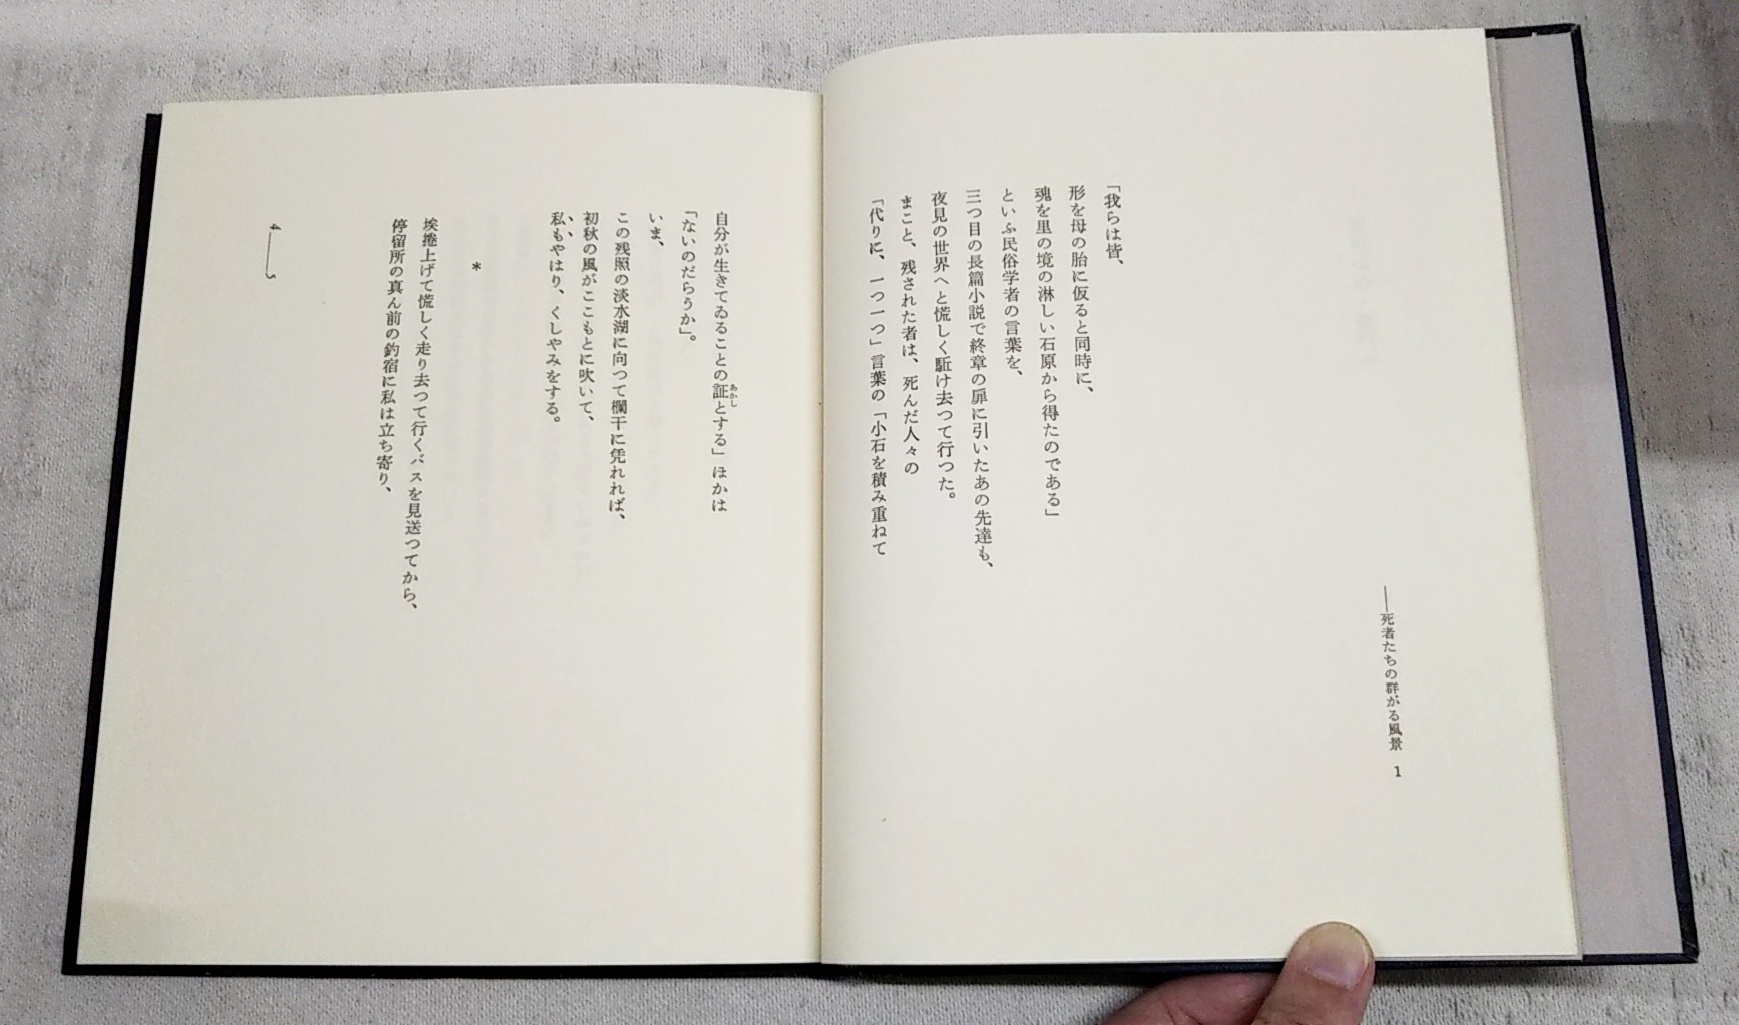 ——死者たちの群がる風景 1
「我らは皆、
形を母の胎に仮ると同時に、
魂を里の境の淋しい石原から得たのである」
といふ民俗学者の言葉を、
三つ目の長篇小説で終章の扉に引いたあの先達も、
夜見の世界へと慌しく駈け去つて行つた。
まこと、残された者は、死んだ人々の
「代りに、一つ一つ」言葉の「小石を積み重ねて
自分が生きてゐることの証とする」ほかは
あかし
「ないのだらうか」。
いま、
この残照の淡水湖に向つて欄干に凭れれば、
初秋の風がここもとに吹いて、
私もやはり、くしやみをする。
*
埃捲上げて慌しく走り去つて行くバスを見送つてから、
停留所の真ん前の釣宿に私は立ち寄り、
4——5